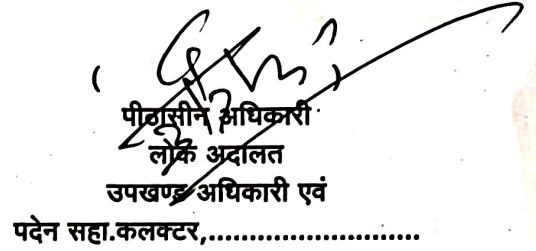 पीठासीन अधिकारी
लोक अदालत
उपखण्ड अधिकारी एवं
पदेन सहा.कलक्टर,...........................